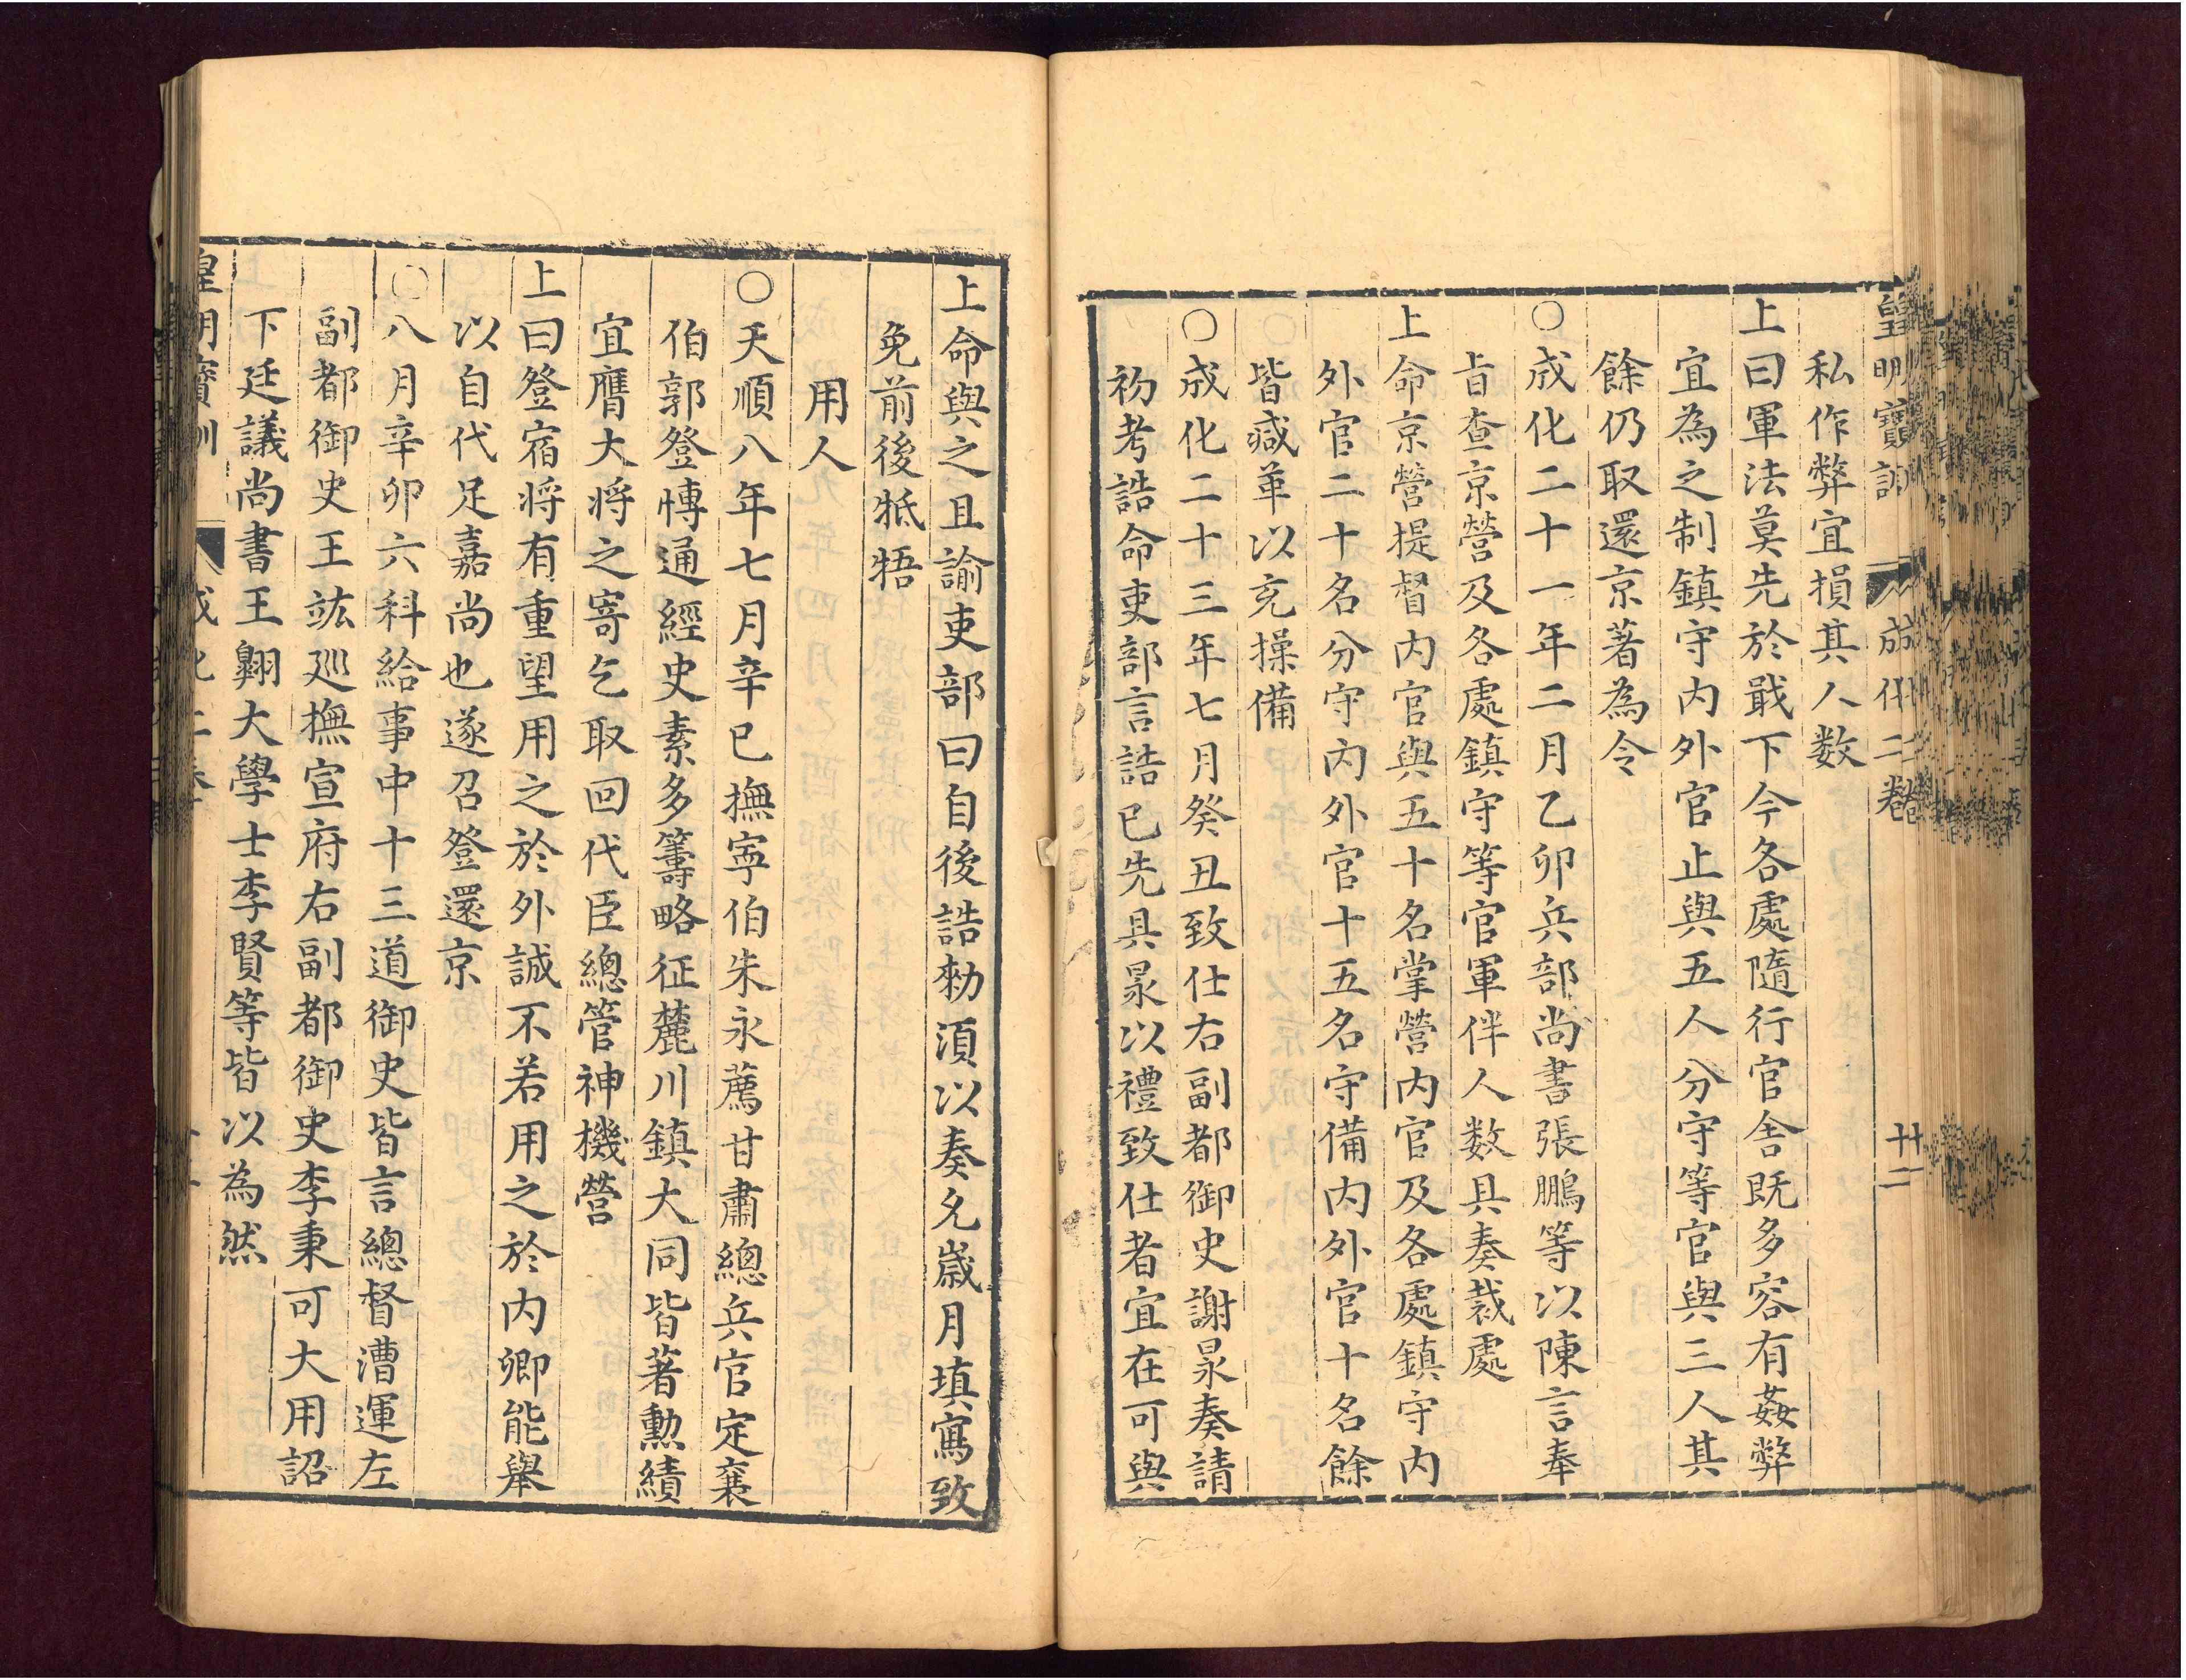 皇明寶訓 成化二卷 廿二
私作弊宜損其人数
上曰軍法莫先於戢下今各處隨行官舍既多容有姦弊
宜為之制鎮守内外官止與五人分守等官與三人其
餘仍取還京著為令
○成化二十一年二月乙卯兵部尚書張鵬等以陳言奉
旨查京營及各處鎮守等官軍伴人数具奏裁處
上命京營提督内官與五十名掌營内官及各處鎮守内
外官二十名分守内外官十五名守備内外官十名餘
皆減革以充操備
○成化二十三年七月癸丑致仕右副都御史謝㫤奏請
初考誥命吏部言誥已先具㫤以禮致仕者宜在可與
上命與之且諭吏部曰自後誥勑須以奏允歲月填寫致
免前後牴牾
用人
○天順八年七月辛巳撫寧伯朱永薦甘肅總兵官定襄
伯郭登慱通經史素多籌略征麓川鎮大同皆著勳績
宜膺大将之寄乞取回代臣總管神機營
上曰登宿将有重望用之於外誠不若用之於内卿能舉
以自代足嘉尚也遂召登還京
○八月辛卯六科給事中十三道御史皆言總督漕運左
副都御史王竑廵撫宣府右副都御史李秉可大用詔
下廷議尚書王翺大學士李賢等皆以為然
皇明寶訓 成化二卷